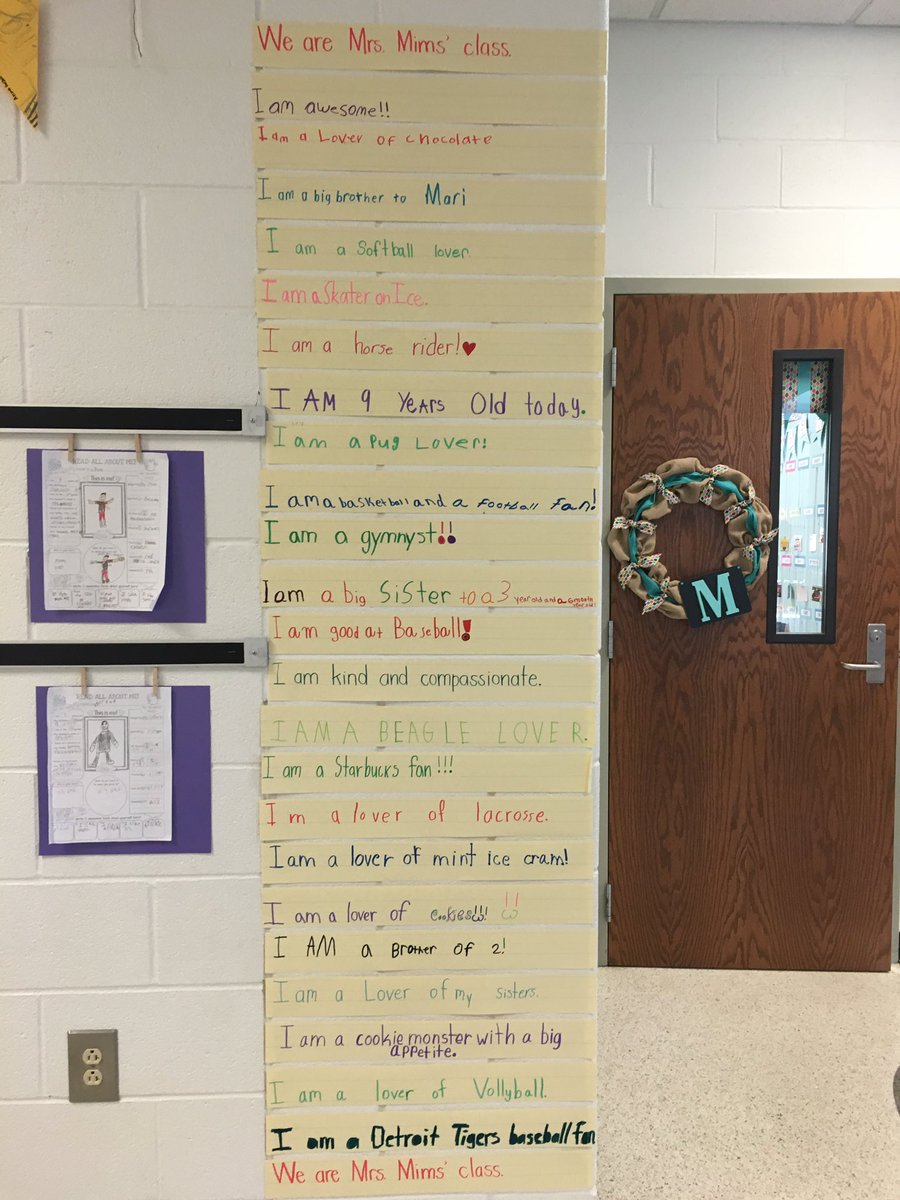 We are Mrs. Mims' class.
I am awesome!!
I am a Lover of chocolate
I am a big brother to Mari
I am a Softball lover.
I am a Skater on Ice.
I am a horse rider!♥
I AM 9 YeARS Old today.
I am a Pug Lover!
I am a basketball and a football fan!
I am a gymnyst!!
I am a big SiSter to a 3 year old and a 6 month year old!
I am good at Baseball!
I am kind and compassionate.
I AM A BEAGLE LOVER.
I am a Starbucks fan!!!
I m a lover of lacrosse.
I am a lover of mint ice cram!
I am a lover of cookies!!!
I AM a Brother of 2!
I am a Lover of my sisters.
I am a cookie monster with a big
appetite.
I am a lover of Vollyball.
I am a Detroit Tigers baseball fan
We are Mrs. Mims' class.
READ ALL ABOUT ME!
This is me!
READ ALL ABOUT ME!
This is me!
M